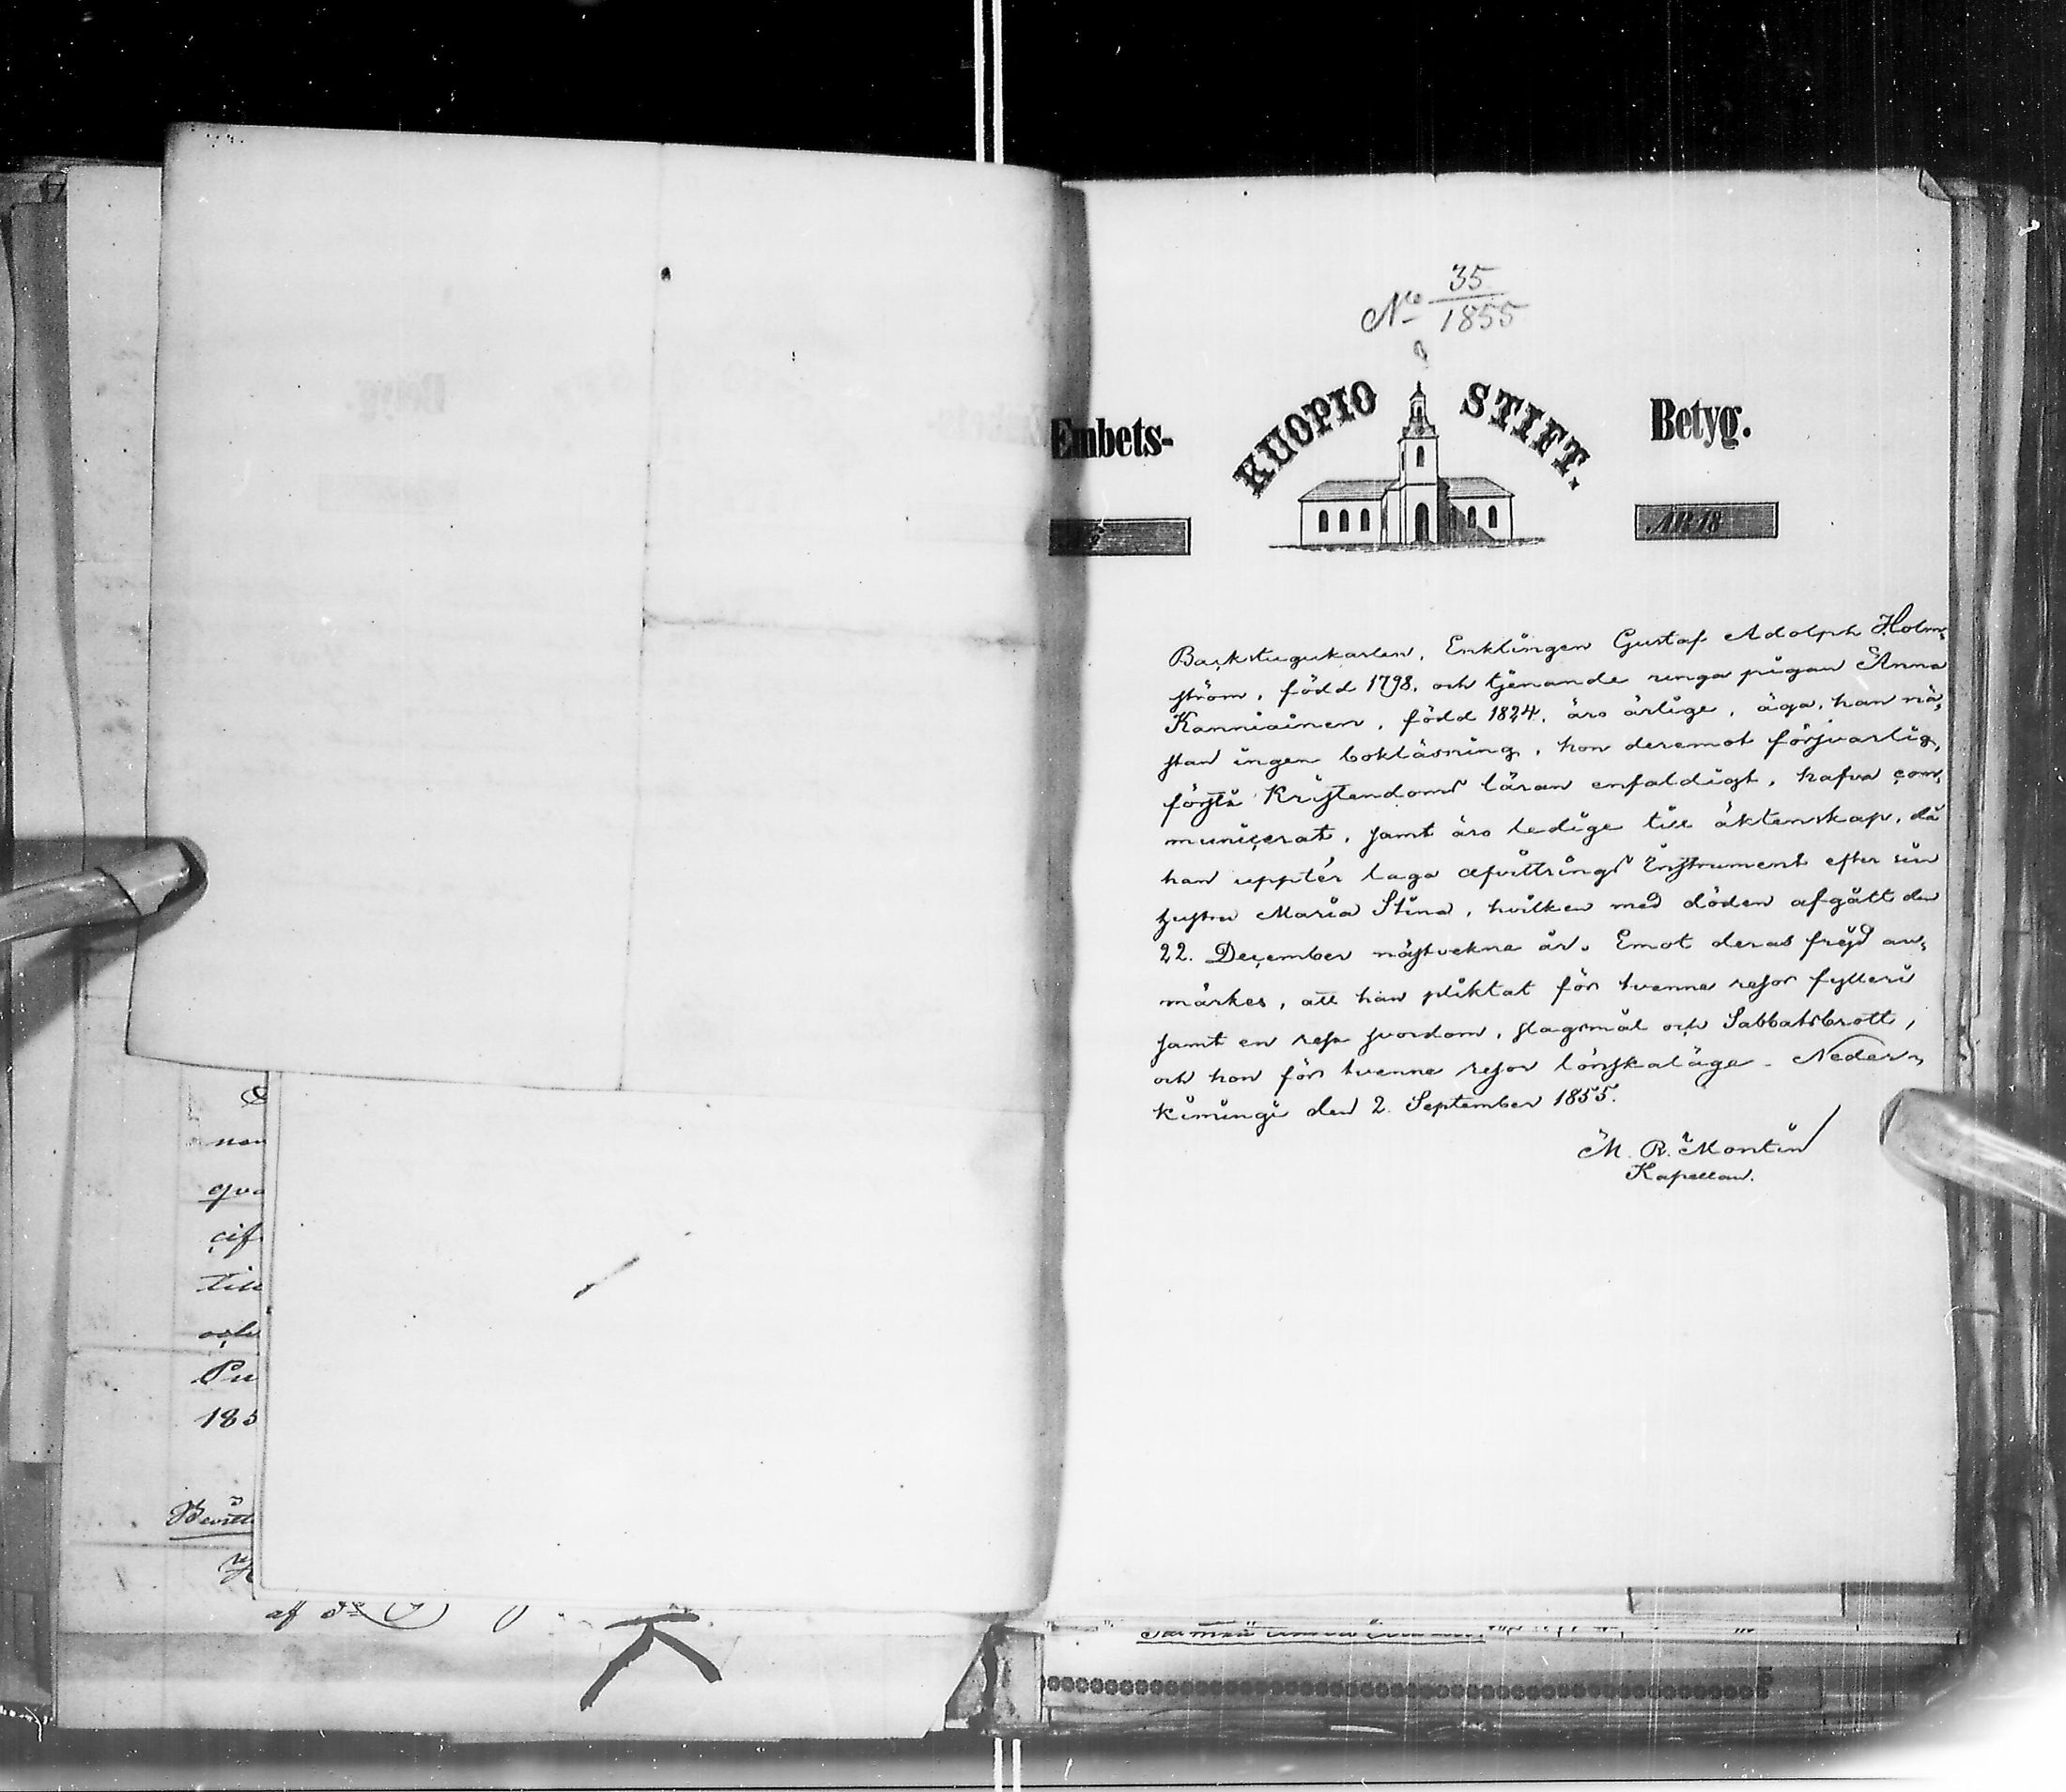 No 35/1855
Embets-
KUOPIO STIFT.
Betyg.
ÅR 18
Backstugukarlen, Enklingen Gustaf Adolph Holm-
ström, född 1798, och tjenande ringa pigan Anna
Kanniainen, född 1824, äro ärlige, äga, han nä-
stan ingen bokläsning, hon deremot försvarlig,
förstå Kristendoms läran enfaldigt, hafva com-
municerat, samt äro ledige till äktenskap, då
han uppter laga afvittrings Instrument efter sin
hustru Maria Stina, hvilken med döden afgått den
22. December nästvekne år. Emot deras frejd an-
märkes, att han pliktat för tvenne resor fylleri
samt en resa svordom, slagsmål och Sabbatsbrott,
och hon för tvenne resor lönskaläge. Neder-
kimingi den 2. September 1855.
M. R. Montin
Kapellan.
nan
qva
cif
till
och
Pu
185
af